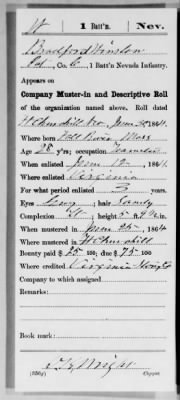 W 1 Batt'n. Nev.
Bradford Winslow
Pvt, Co. C, 1 Batt'n Nevada Infantry.
Appears on
Company Muster-in and Descriptive Roll
of the organization named above. Roll dated
Ft Churchill Nev June 25, 1864.
Where born Fall River Mass
Age 28 y'rs; occupation Teamster
When enlisted June 12, 1864.
Where enlisted Virginia
For what period enlisted 3 years.
Eyes Gray; hair Sandy
Complexion Lt; height 5 ft. 9½ in.
When mustered in June 25, 1864
Where mustered in Ft Churchill
Bounty paid $ 25 100; due $ 75 100
Where credited Virginia
Company to which assigned
Remarks:
Book mark:
Wright
(356g) Copyist.